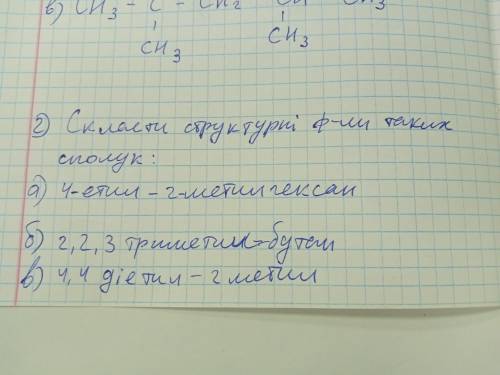 в) CH₃ - C - CH₂ CH CH₃
CH₃ CH₃
2) Скласти структурні ф-ли таких
сполук:
а) 4-етил-2-метилгексан
б) 2,2,3 триметил-бутан
в) 4,4 діетил-2 метил